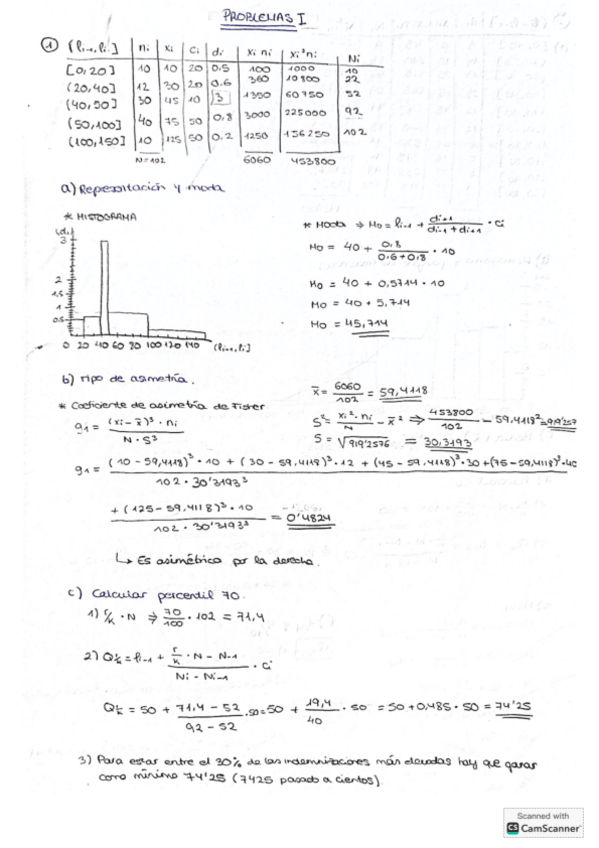 PROBLEMAS I
① (li-1, li] ni xi ci di xi ni xi²ni Ni
[0,20] 10 10 20 0.5 100 1000 10
(20,40] 12 30 20 0.6 360 10800 22
(40,50] 30 45 10 3 1350 60750 52
(50,100] 40 75 50 0.8 3000 225000 92
(100,150] 10 125 50 0.2 1250 156250 102
N=102 6060 453800
a) Representación y moda
* HISTOGRAMA
(di)
3
2
1,5
1
0.5
0 20 40 60 80 100 120 140 (li-1, li]
* Moda ⇒ Mo = li-1 + di+1 / (di-1 + di+1) · ci
Mo = 40 + 0.8 / (0.6+0.8) · 10
Mo = 40 + 0,5714 · 10
Mo = 40 + 5,714
Mo = 45,714
b) Tipo de asimetría.
* Coeficiente de asimetría de Fisher
g1 = (xi - x̄)³ · ni / N · S³
x̄ = 6060 / 102 = 59,4118
S² = xi² · ni / N - x̄² ⇒ 453800 / 102 - 59,4118² = 919'257
S = √919'2576 = 30,3193
g1 = (10 - 59,4118)³ · 10 + (30 - 59,4118)³ · 12 + (45 - 59,4118)³ · 30 + (75 - 59,4118)³ · 40
102 · 30'3193³
+ (125 - 59,4118)³ · 10 / 102 · 30'3193³ = 0'4824
↳ Es asimétrica por la derecha.
c) Calcular percentil 70.
1) r/k · N ⇒ 70/100 · 102 = 71,4
2) Qr/k = li-1 + (r/k · N - Ni-1) / (Ni - Ni-1) · ci
Qr/k = 50 + (71,4 - 52) / (92 - 52) · 50 = 50 + 19,4 / 40 · 50 = 50 + 0,485 · 50 = 74'25
3) Para estar entre el 30% de las indemnizaciones más elevadas hay que ganar
como mínimo 74'25 (7425 pasado a cientos).
Scanned with
CS CamScanner